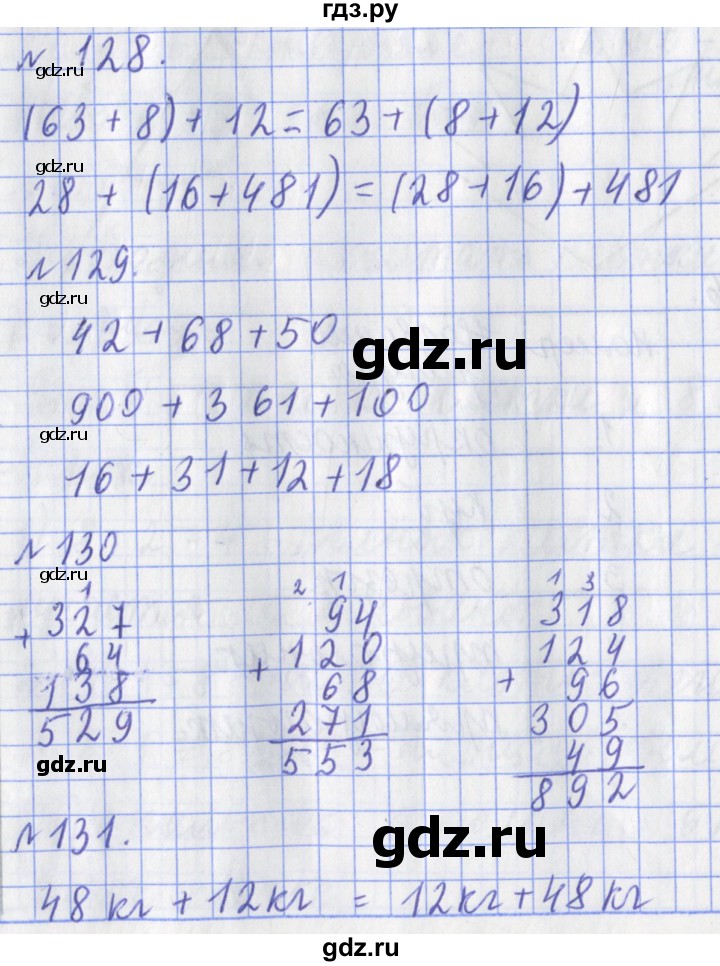 гдз.ру
№ 128.
gdz.ru
(63 + 8) + 12 = 63 + (8 + 12)
gdz.ru
28 + (16 + 481) = (28 + 16) + 481
№ 129.
gdz.ru
42 + 68 + 50
gdz.ru
900 + 361 + 100
gdz.ru
16 + 31 + 12 + 18
№ 130
gdz.ru
1
+ 327
64
138
529
gdz.ru
2 1
94
+ 120
68
271
553
1 3
318
124
+ 96
305
49
892
№ 131.
gdz.ru
48 кг + 12 кг = 12 кг + 48 кг
gdz.ru